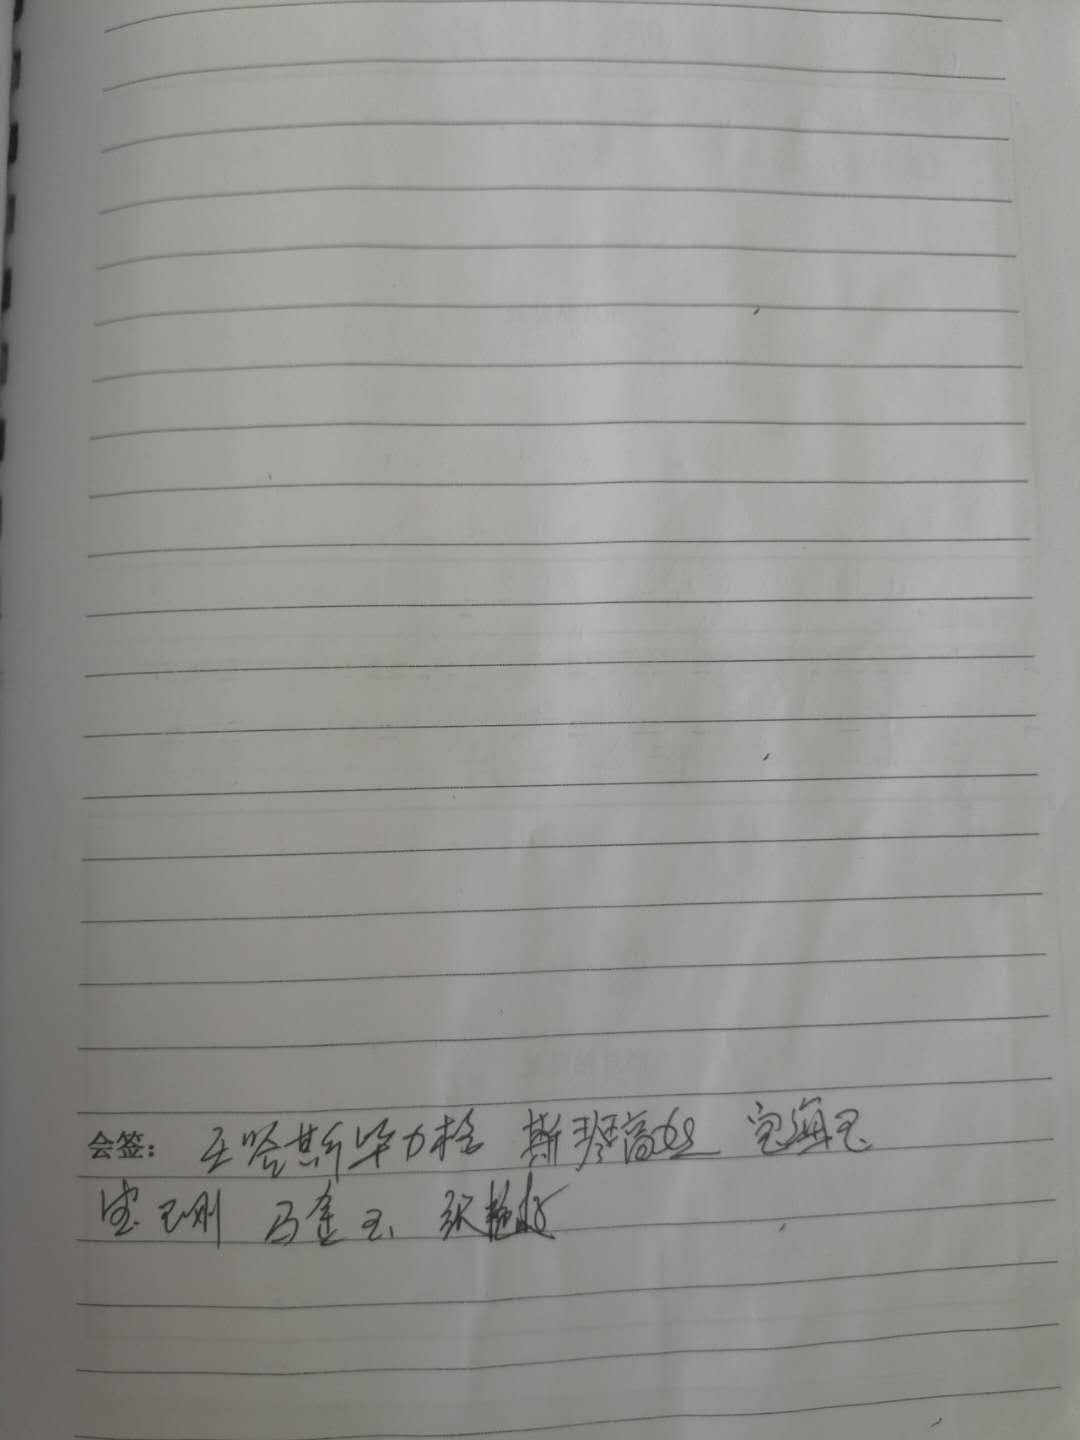 会签： 王哈斯毕力格 斯琴高娃 宝海玉
宝玉刚 马莲玉 张艳